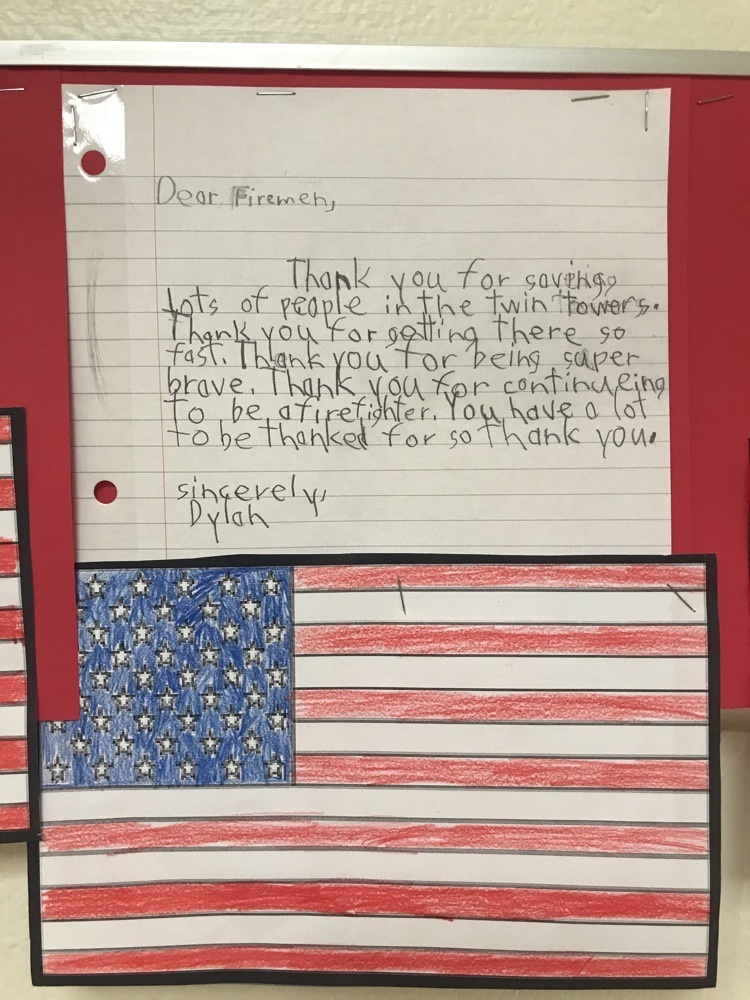 Dear Firemen,
Thank you for saving
lots of people in the twin towers.
Thank you for getting there so
fast. Thank you for being super
brave. Thank you for continueing
to be a firefighter. You have a lot
to be thanked for so thank you.
sincerely,
Dylan